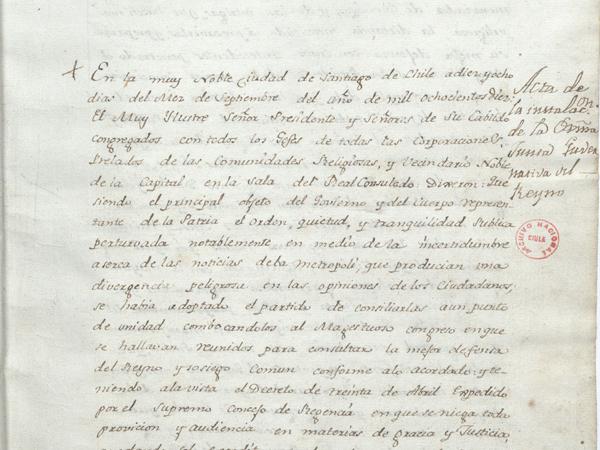 En la muy Noble Ciudad de Santiago de Chile a diez y ocho
dias del Mes de Septiembre del año de mil ochocientos diez:
El Muy Ilustre Señor Presidente y Señores de Su Cabildo
congregados con todos los Gefes de todas las Corporaciones,
Prelados de las Comunidades Religiosas, y Vecindario Noble
de la Capital en la Sala del Real Consulado. Dixeron: Que
siendo el principal objeto del Govierno y del Cuerpo represen-
tante de la Patria el orden, quietud, y tranquilidad publica
perturvada notablemente en medio de la incertidumbre
acerca de las noticias de la metropoli; que producian una
divergencia peligrosa en las opiniones de los Ciudadanos,
se havia adoptado el partido de consiliarlas a un punto
de unidad combocandolos al Magestuoso congreso en que
se hallavan reunidos para consultar la mejor defensa
del Reyno y sosiego Comun conforme a lo acordado: y te-
niendo a la vista el Decreto de treinta de Abril Expedido
por el Supremo Concejo de Regencia en que se niega toda
provicion y audiencia en materias de gracia y Justicia,
Acta de
la instalac.on
de la
Junta Guber
nativa del
Reyno
ARCHIVO NACIONAL
CHILE